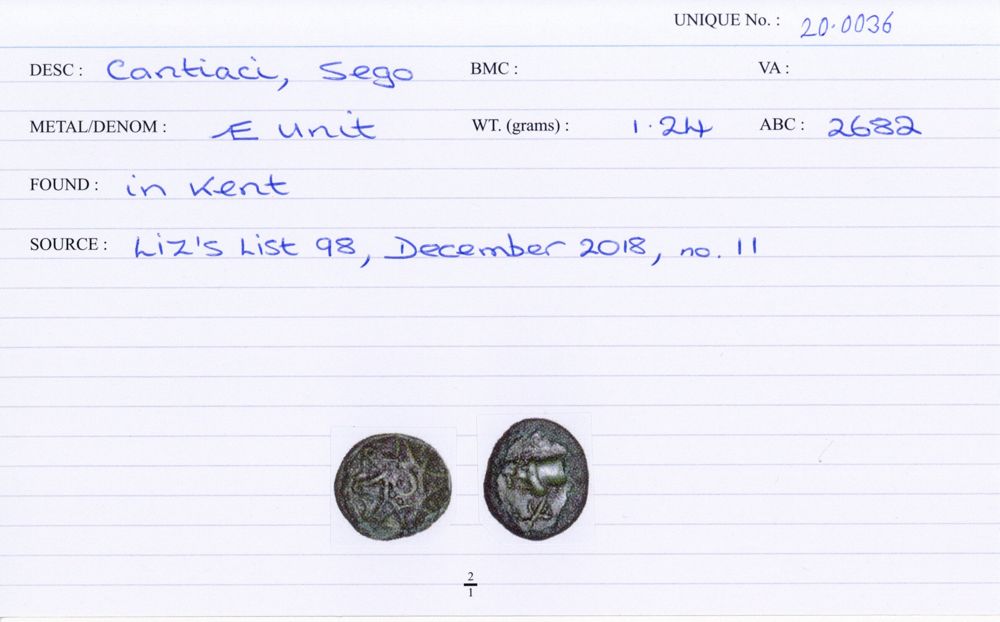 UNIQUE No. : 20.0036
DESC : Cantiaci, Sego BMC : VA :
METAL/DENOM : Æ unit WT. (grams) : 1.24 ABC : 2682
FOUND : in Kent
SOURCE : Liz's List 98, December 2018, no. 11
2
1